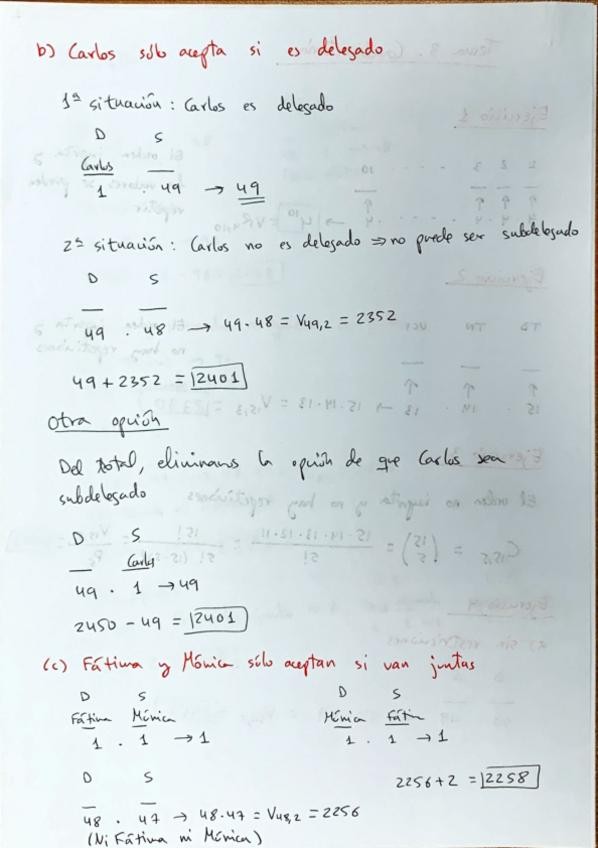 b) Carlos sólo acepta si es delegado
1ª situación: Carlos es delegado
D S
Carlos __
1 . 49 → 49
2ª situación: Carlos no es delegado ⇒ no puede ser subdelegado
D S
__ __
49 . 48 → 49·48 = V49,2 = 2352
49 + 2352 = 2401
Otra opción
Del total, eliminamos la opción de que Carlos sea
subdelegado
D S
__ Carlos
49 . 1 → 49
2450 - 49 = 2401
(c) Fátima y Mónica sólo aceptan si van juntas
D S D S
Fátima Mónica Mónica Fátima
1 . 1 → 1 1 . 1 → 1
D S
2256 + 2 = 2258
__ __
48 . 47 → 48·47 = V48,2 = 2256
(Ni Fátima ni Mónica)